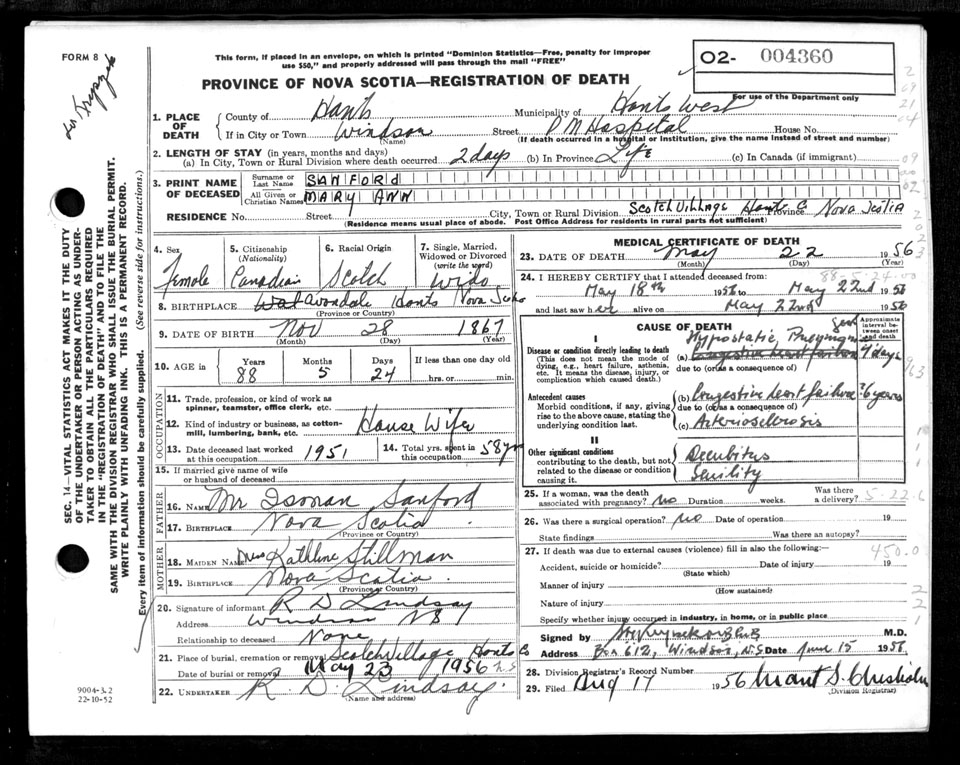 FORM 8
This form, if placed in an envelope, on which is printed "Dominion Statistics—Free, penalty for improper
use $50," and properly addressed will pass through the mail "FREE"
PROVINCE OF NOVA SCOTIA—REGISTRATION OF DEATH
02- 004360
For use of the Department only
1. PLACE OF DEATH
County of Hants Municipality of Hants West
If in City or Town Windsor Street P M Hospital House No.
(Name) (If death occurred in a hospital or institution, give the name instead of street and number)
2. LENGTH OF STAY (in years, months and days)
(a) In City, Town or Rural Division where death occurred 2 days (b) In Province Life (c) In Canada (if immigrant)
3. PRINT NAME OF DECEASED
Surname or Last Name SANFORD
All Given or Christian Names MARY ANN
RESIDENCE No. Street City, Town or Rural Division Scotch Village Hants Co Province Nova Scotia
(Residence means usual place of abode. Post Office Address for residents in rural parts not sufficient)
4. Sex Female
5. Citizenship (Nationality) Canadian
6. Racial Origin Scotch
7. Single, Married, Widowed or Divorced (write the word) Wido
8. BIRTHPLACE Avondale Hants Nova Scotia
(Province or Country)
9. DATE OF BIRTH Nov 28 1867
(Month) (Day) (Year)
10. AGE in Years 88 Months 5 Days 24 If less than one day old hrs. or min.
OCCUPATION
11. Trade, profession, or kind of work as spinner, teamster, office clerk, etc.
12. Kind of industry or business, as cotton-mill, lumbering, bank, etc. House Wife
13. Date deceased last worked at this occupation 1951
14. Total yrs. spent in this occupation 58 yrs
15. If married give name of wife or husband of deceased
FATHER
16. NAME Mr Isman Sanford
17. BIRTHPLACE Nova Scotia
(Province or Country)
MOTHER
18. MAIDEN NAME Miss Kathline Stillman
19. BIRTHPLACE Nova Scotia
(Province or Country)
20. Signature of informant R D Lindsay
Address Windsor N S
Relationship to deceased None
21. Place of burial, cremation or removal Scotch Village Hants Co
Date of burial or removal May 23 1956 N.S
22. UNDERTAKER R. D. Lindsay
(Name and address)
MEDICAL CERTIFICATE OF DEATH
23. DATE OF DEATH May 22 1956
(Month) (Day) (Year)
88-5-24-00
24. I HEREBY CERTIFY that I attended deceased from:
May 18th 1956 to May 22nd 1956
and last saw her alive on May 22nd 1956
CAUSE OF DEATH
Approximate interval between onset and death
I
Disease or condition directly leading to death
(This does not mean the mode of dying, e.g., heart failure, asthenia, etc. It means the disease, injury, or complication which caused death.)
(a) Hypostatic Pneumonia Congestive heart failure 4 days
due to (or as a consequence of)
Antecedent causes
Morbid conditions, if any, giving rise to the above cause, stating the underlying condition last.
(b) Congestive heart failure ?6 years
due to (or as a consequence of)
(c) Arteriosclerosis
II
Other significant conditions
contributing to the death, but not related to the disease or condition causing it.
Decubitus
Senility
25. If a woman, was the death associated with pregnancy? no Duration weeks. Was there a delivery?
5-22-6
26. Was there a surgical operation? no Date of operation 19
State findings Was there an autopsy?
27. If death was due to external causes (violence) fill in also the following:— 450.0
Accident, suicide or homicide? Date of injury 19
(State which)
Manner of injury
(How sustained)
Nature of injury
Specify whether injury occurred in industry, in home, or in public place
Signed by M.D.
Address Box 612, Windsor, N.S Date June 15 1956
28. Division Registrar's Record Number
29. Filed Aug 17 1956 Grant S. Chisholm
(Division Registrar)
SEC. 14—VITAL STATISTICS ACT MAKES IT THE DUTY
OF THE UNDERTAKER OR PERSON ACTING AS UNDER-
TAKER TO OBTAIN ALL THE PARTICULARS REQUIRED
IN THE "REGISTRATION OF DEATH" AND TO FILE THE
SAME WITH THE DIVISION REGISTRAR WHO SHALL ISSUE THE BURIAL PERMIT.
WRITE PLAINLY WITH UNFADING INK. THIS IS A PERMANENT RECORD.
Every item of information should be carefully supplied. (See reverse side for instructions.)
9004-3.2
22-10-52